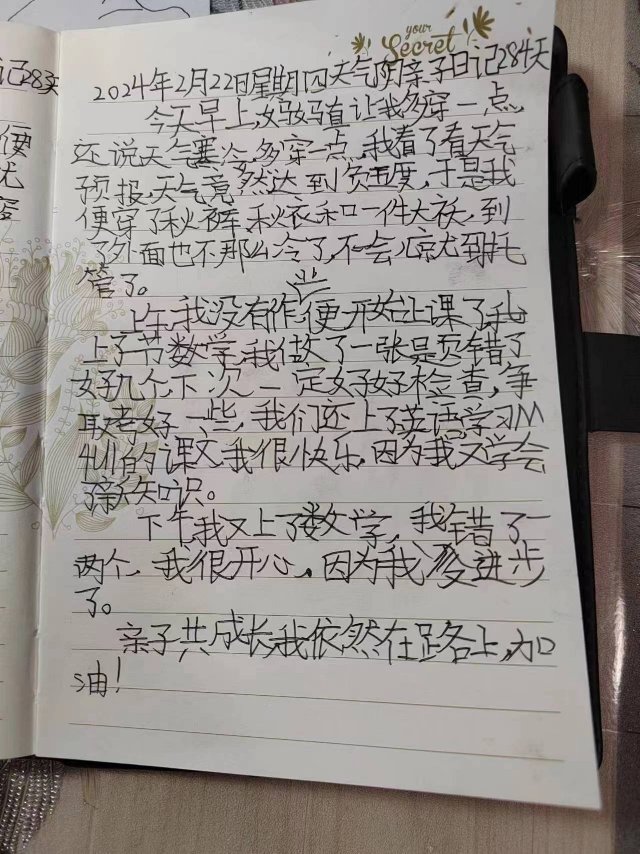 your
Secret
记283天
便
2024年2月22日星期四天气阴亲子日记284天
今天早上,妈妈直让我多穿一点,
还说天气寒冷,多穿一点,我看了看天气
预报,天气竟然达到负五度,于是我
便穿了秋裤,秋衣和一件大袄,到
了外面也不那么冷了,不会凉尤到
管了。
上午,我没有作业便开始上课了,我
上了节数学,我做了一张 页错了
好几个,下次一定好好检查,争
取考好一些,我们还上了英语学习M
4U1的课文,我很快乐,因为我又学会
了新知识。
下午,我又上了数学,我错了一
两个,我很开心,因为我 进步
了。
亲子共成长我依然在路上,加
油!